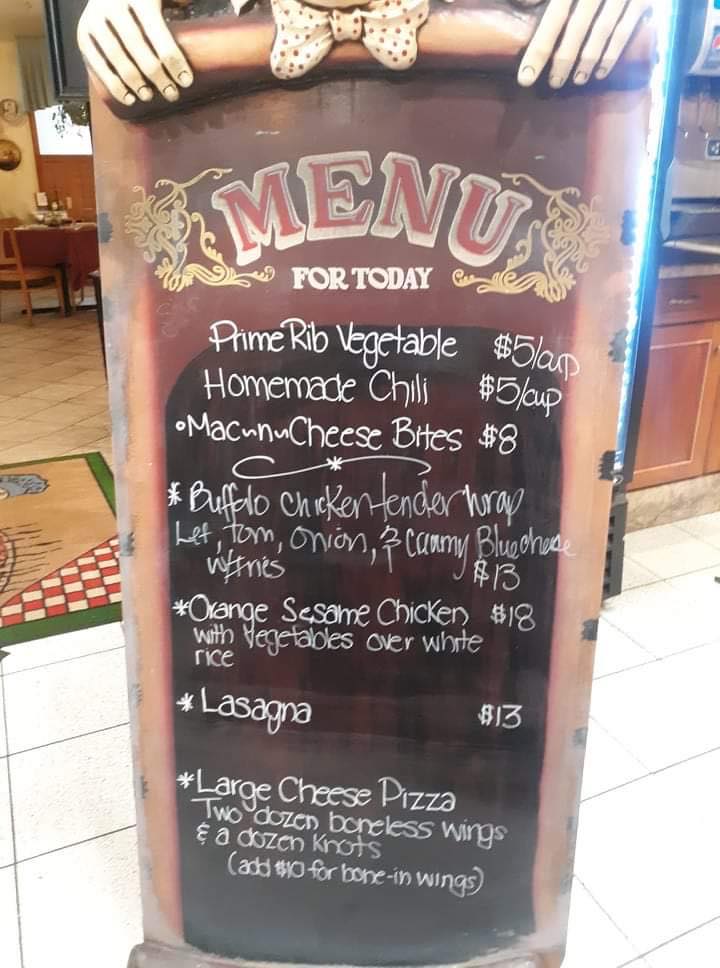 MENU
FOR TODAY
Prime Rib Vegetable $5/cup
Homemade Chili $5/cup
•Mac~n~Cheese Bites $8
* Buffalo chicken tender wrap
Let, Tom, onion, & Creamy Bluecheese
w/fries $13
*Orange Sesame Chicken $18
with vegetables over white
rice
* Lasagna $13
*Large Cheese Pizza
Two dozen boneless wings
& a dozen Knots
(add $10 for bone-in wings)